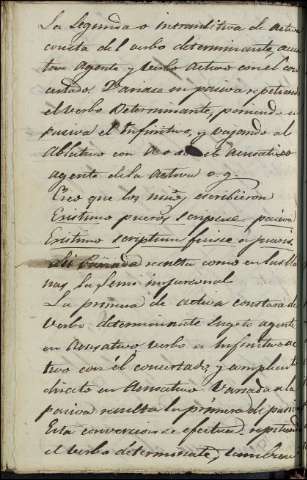 La Segunda o intransitiva de activa
consta del verbo determinante, acusa
tivo agente y verbo activo con el con
certado. Pasada en pasiva repetiendo
el verbo Determinante, poniendo en
pasiva el Infinitivo, y bajando al
Ablativo con a o ab el Acusativo
agente de la activa v. g.
Creo que los niños escribieron
Existimo pueros scripsisse pasiva
Existimo scriptum fuisse a pueris
resulta como en las
nas la Semi impersonal
La primera de activa constara de
Verbo determinante Sugeto agente
en Acusativo Verbo en Infinitivo ac
tivo con él concertado, y complemento
directo en Acusativo Variada a la
pasiva resulta la primera de pasiva
Esta conversion se efectua repitiendo
el Verbo determinante, y